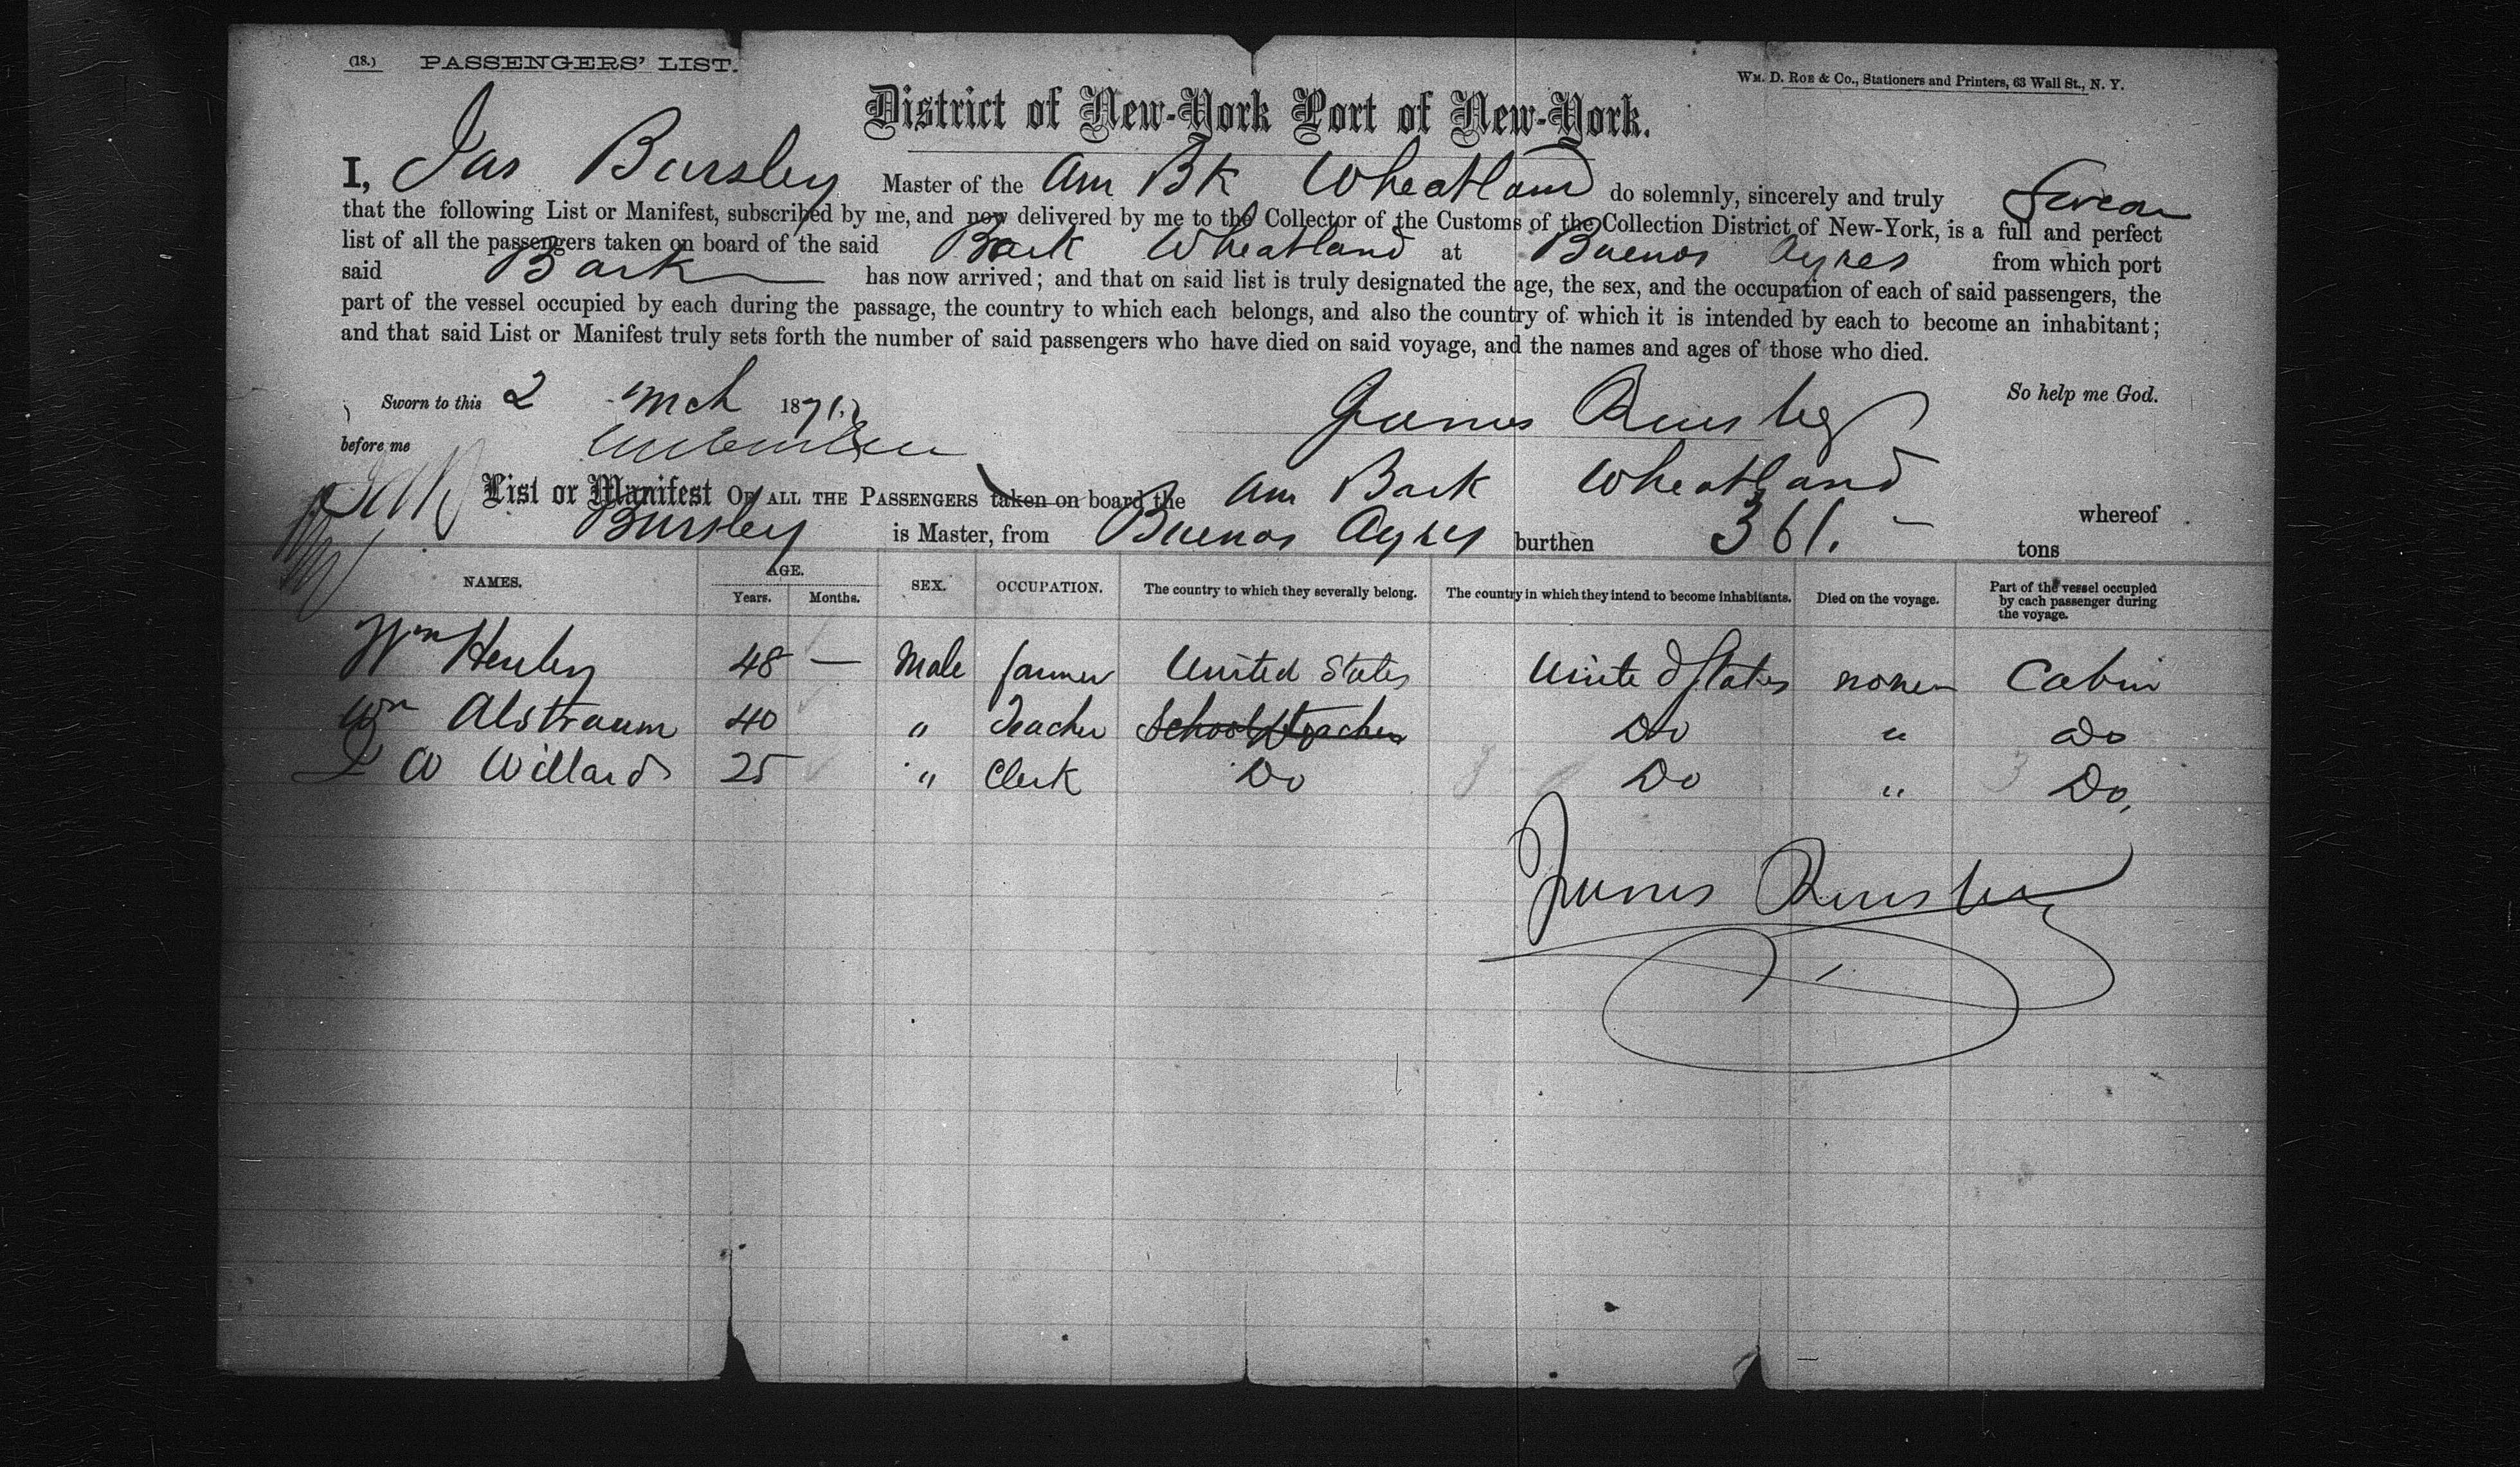 (18.) PASSENGERS' LIST.
WM. D. ROE & Co., Stationers and Printers, 63 Wall St., N. Y.
District of New-York Port of New-York.
I, Jas Bursley Master of the Am Bk Wheatland do solemnly, sincerely and truly Swear
that the following List or Manifest, subscribed by me, and now delivered by me to the Collector of the Customs of the Collection District of New-York, is a full and perfect
list of all the passengers taken on board of the said Bark Wheatland at Buenos Ayres from which port
said Bark has now arrived; and that on said list is truly designated the age, the sex, and the occupation of each of said passengers, the
part of the vessel occupied by each during the passage, the country to which each belongs, and also the country of which it is intended by each to become an inhabitant;
and that said List or Manifest truly sets forth the number of said passengers who have died on said voyage, and the names and ages of those who died.
So help me God.
Sworn to this 2 Mch 1871.
James Bursley
before me
List or Manifest OF ALL THE PASSENGERS taken on board the Am Bark Wheatland whereof
Bursley is Master, from Buenos Ayres burthen 361. tons
NAMES. AGE. Years. Months. SEX. OCCUPATION. The country to which they severally belong. The country in which they intend to become inhabitants. Died on the voyage. Part of the vessel occupied by each passenger during the voyage.
Wm Henley 48 — Male farmer United States United States none Cabin
Wm Alstraum 40 " Teacher School teacher Do Do " Do
W Willard 25 " Clerk Do Do " Do,
James Bursley